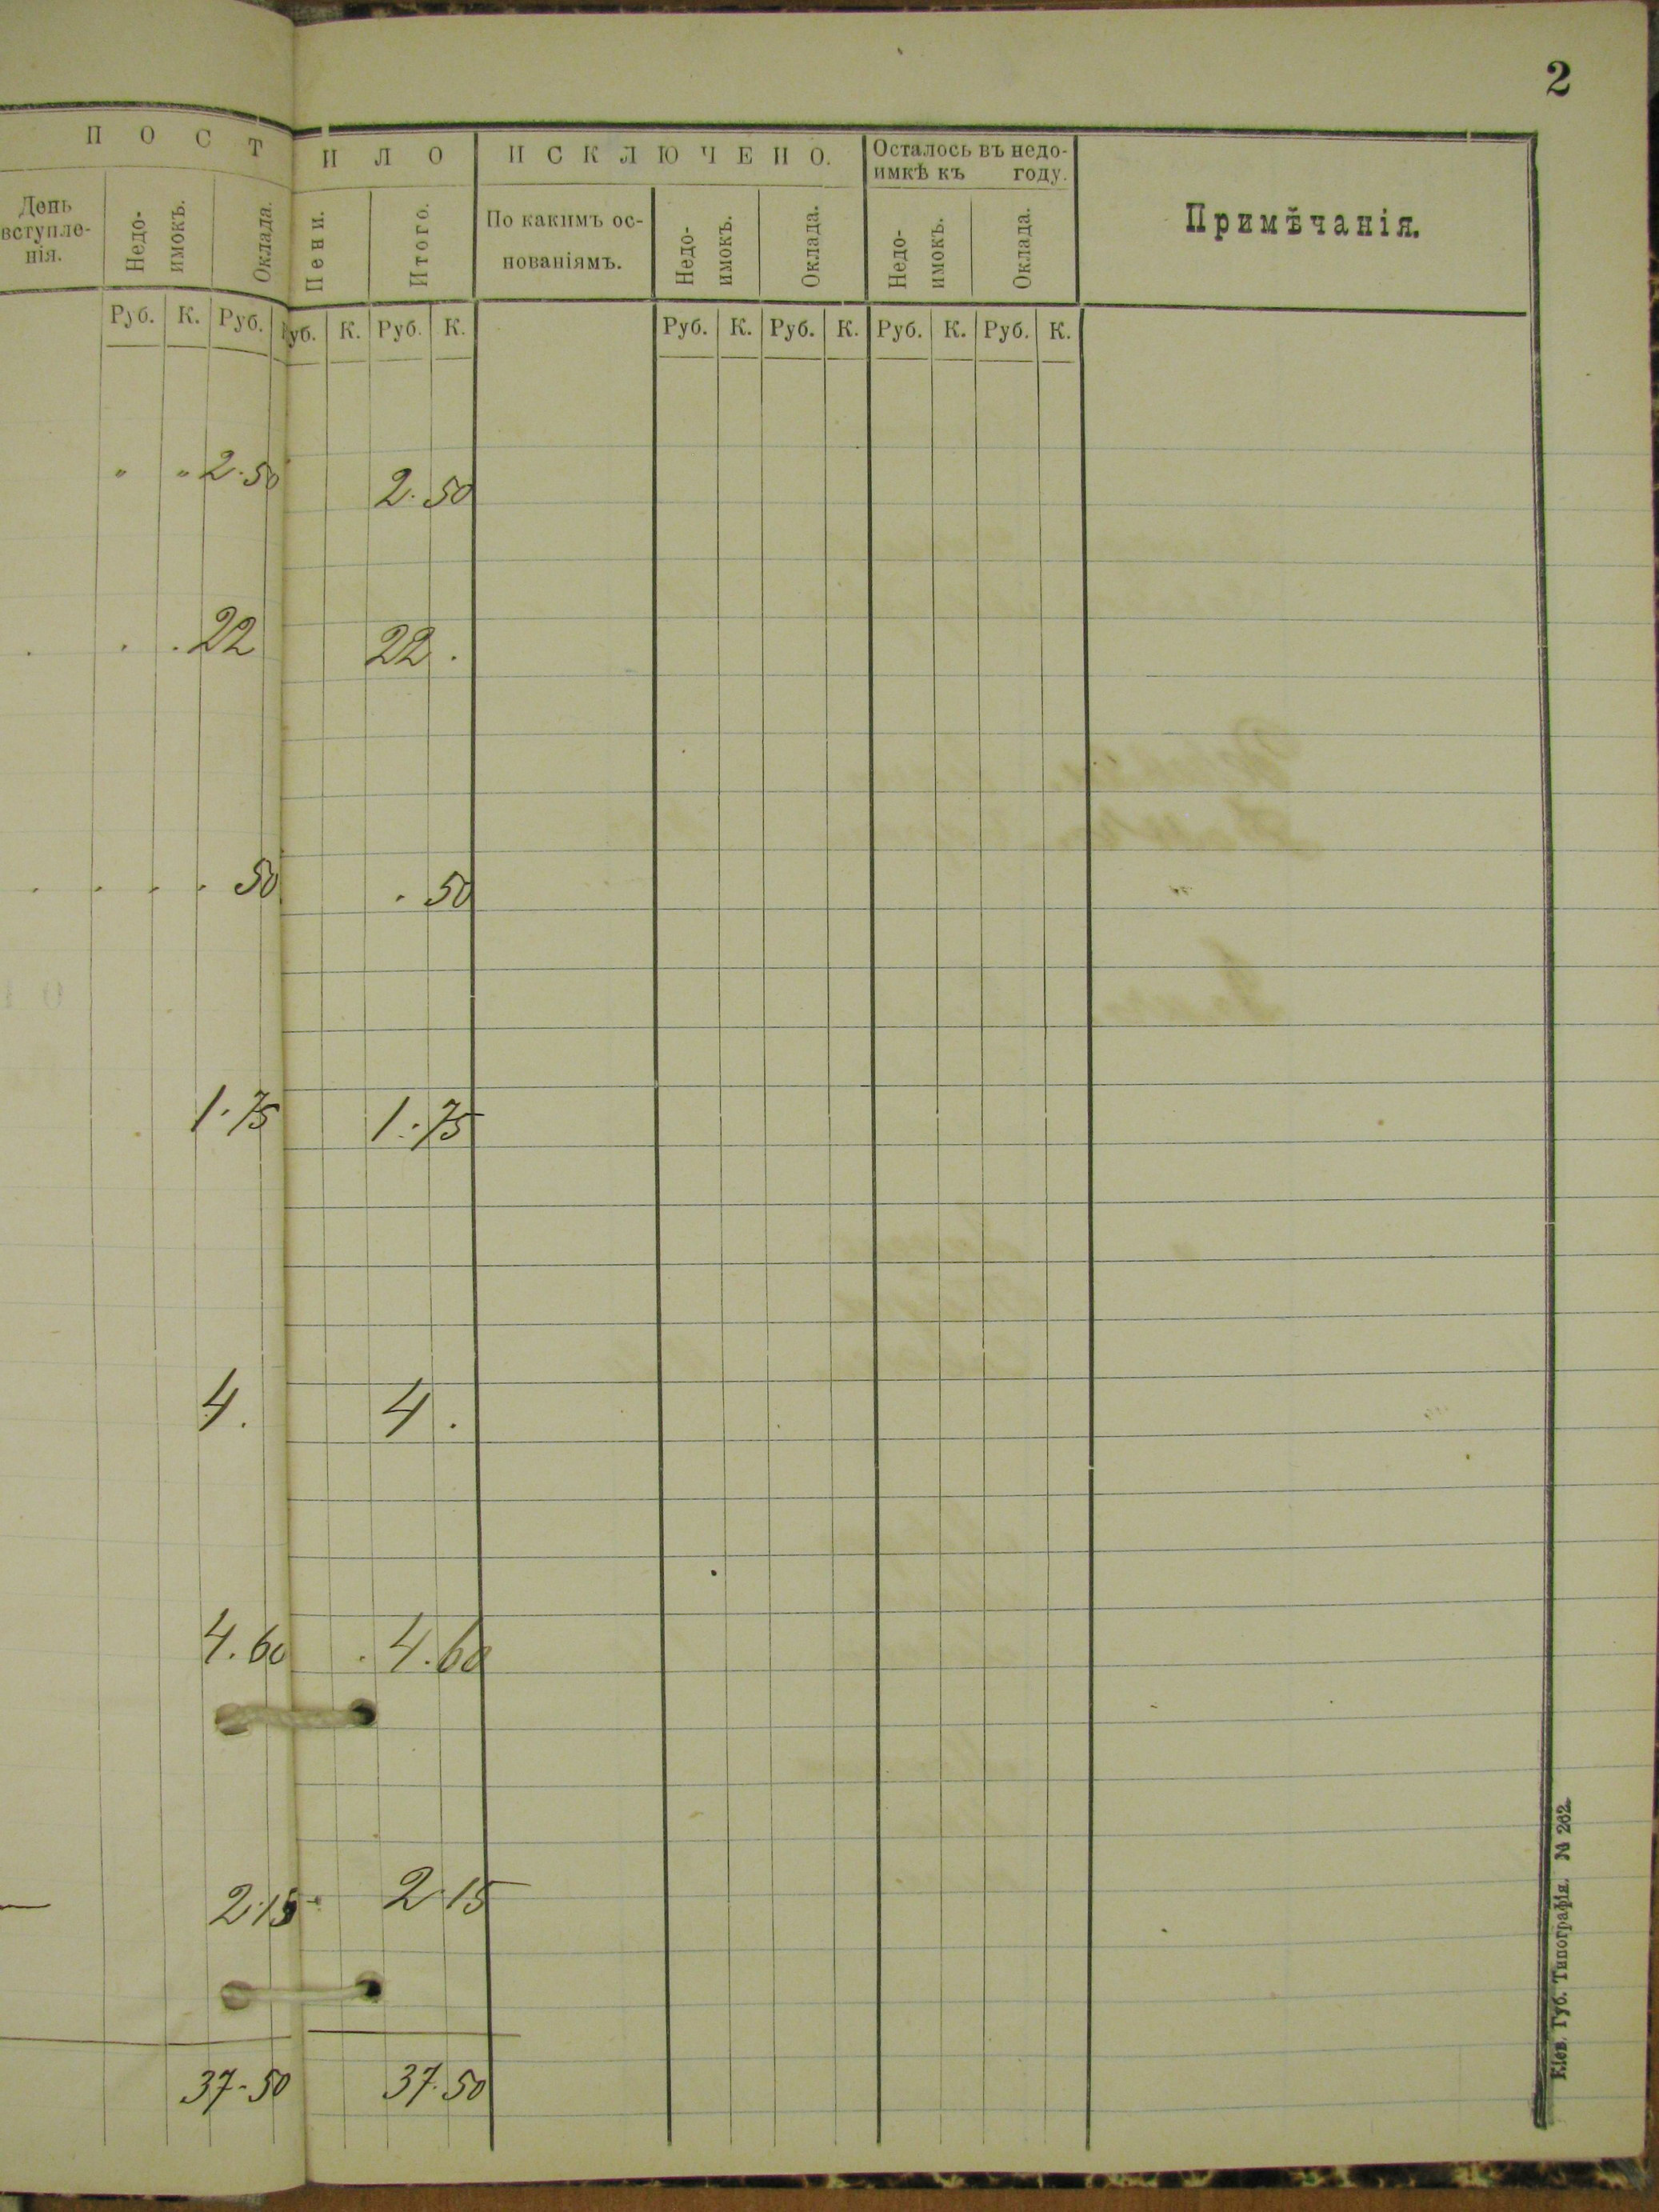 2
П О С Т И Л О И С К Л Ю Ч Е Н О. Осталось въ недо-
имкѣ къ году.
Примѣчанія.
День
вступле-
нія.
Недо-
имокъ.
Оклада.
Пени.
Итого.
По какимъ ос-
нованіямъ.
Недо-
имокъ.
Оклада.
Недо-
имокъ.
Оклада.
Руб. К. Руб. уб. К. Руб. К. Руб. К. Руб. К. Руб. К. Руб. К.
" " 2.50 2.50
. . . 22 22 .
. . . . 50 . 50
1.75 1.75
4. 4 .
4.60 . 4.60
2.15 2.15
37-50 37.50
Кіев. Губ. Типографія. № 262.